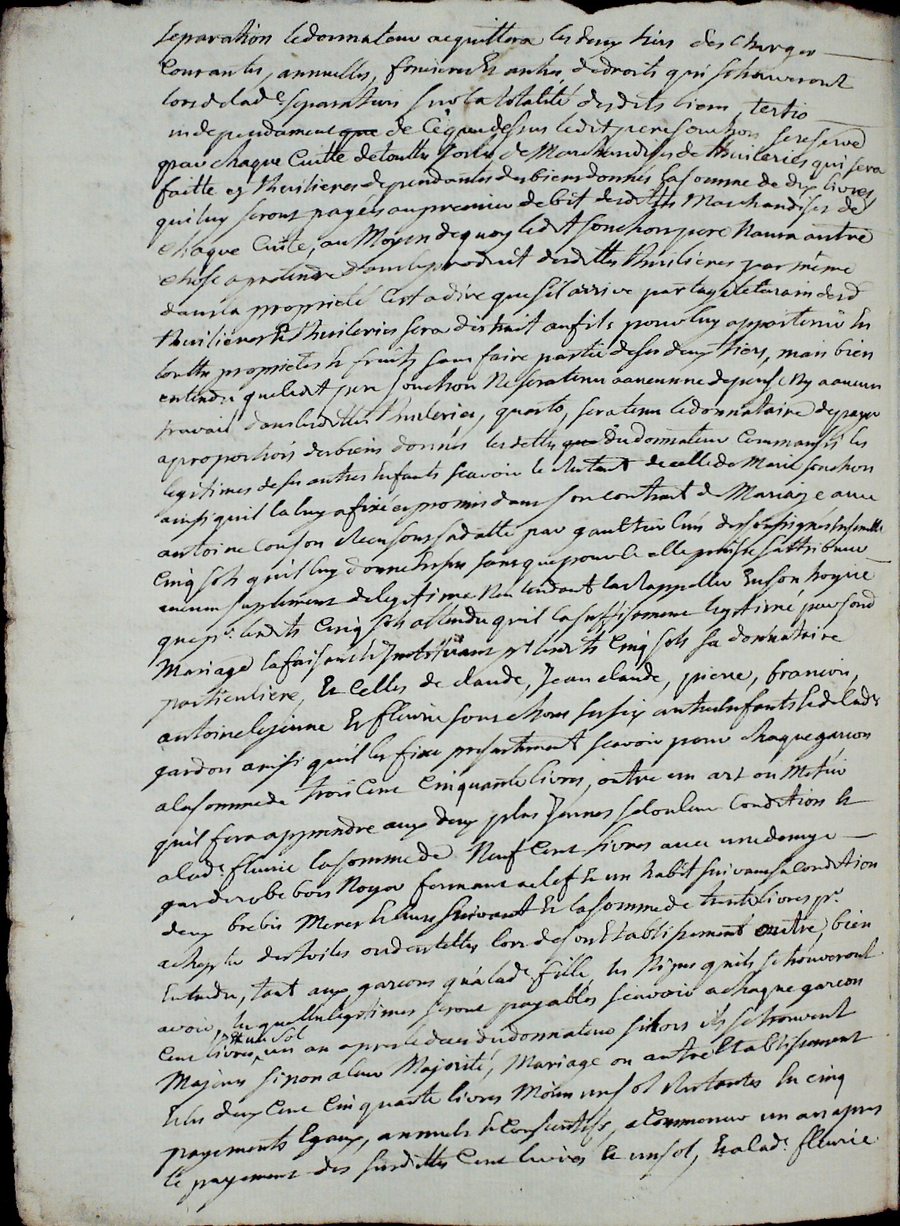 separation ledonnateur acquittera les deux tiers des charges
Courantes, annuelles, foncieres et autres dedroits qui setrouveront
lors delade separation sur la totalité desdits biens, tertio
independament que de Ceque dessus ledit pere sonchon sereserve
pour chaque Cuitte detoutte sortes de Marchandises de thuileries qui sera
faitte es thuilieres dependantes desbiens donnés lasomme de dix livres
qui luy seront payées au premier debit desdittes Marchandises de
chaque Cuite, au Moyen dequoy ledit sonchon pere Naura autre
chose a pretendre dans leproduit desdittes thuilieres par même
dans la proprieté C'est adire que s'il arrive partage leterrain desd
thuilieres et thuileries sera distrait aufils pour luy appartenir en
toutte proprietés et fruits sans faire partie deses deux tiers, mais bien
entendu queledit pere sonchon Ne sera tenu a aucunne depense Ny a aucun
travail dans lesdittes thuileries, quarto, sera tenu ledonnataire depayer
aproportion desbiens donnés les dettes que du donnateur Communes les
legitimes de ses autres Enfants scavoir le Restant decelle de Marie sonchon
ainsi quil la luy a fixée et promis dans son contrat de Mariage avec
antoine Reçu sous sadatte par gaultier l'un des soussignés Ensemble
Cinq sols quil luy donne sans que pour ce elle puisse sattribuer
aucun suplement delegitime Nentendant la Rappeller En son hoyrie
que pr. lesdits Cinq sols attendu quil la suffisamment legitimé par sond
Mariage la faisant et instituant pr lesdits Cinq sols sa donnataire
particuliere, Et Celles de claude, Jean claude, pierre, francois,
antoine lejeune Et fleurie sonchons ses six autres Enfants et delade
gardon ainsi quil les fixe presentement scavoir pour chaque garcon
alasomme de trois Cent Cinquante livres, outre un art ou Metier
quil fera apprendre aux deux plus Jeunes selon leur Condition et
alade fleurie lasomme de Neuf Cent livres avec une demye
garderobe bois Noyer fermant aclef et un habit suivant sa Condition
deux brebis Meres et leurs suivant Et lasomme de trente livres pr.
achepter destoiles ou dentelles lors de son Etablissement outre, bien
Entendu, tant aux garcons qu'alade fille les Nipes quils se trouveront
avoir, lesquelles legitimes seront payables scavoir a chaque garcon
Cent livres et un sol un an apres le deces dudonnateur si lors ils se trouvent
Majeurs sinon a leur Majorité, Mariage ou autre Etablissement
Et les deux Cent Cinquante livres Moins un sol Restantes En cinq
payements Egaux, annuels et Consecutifs, a Commencer un an apres
le payement des susdittes Cent livres et un sol, Et alade fleurie